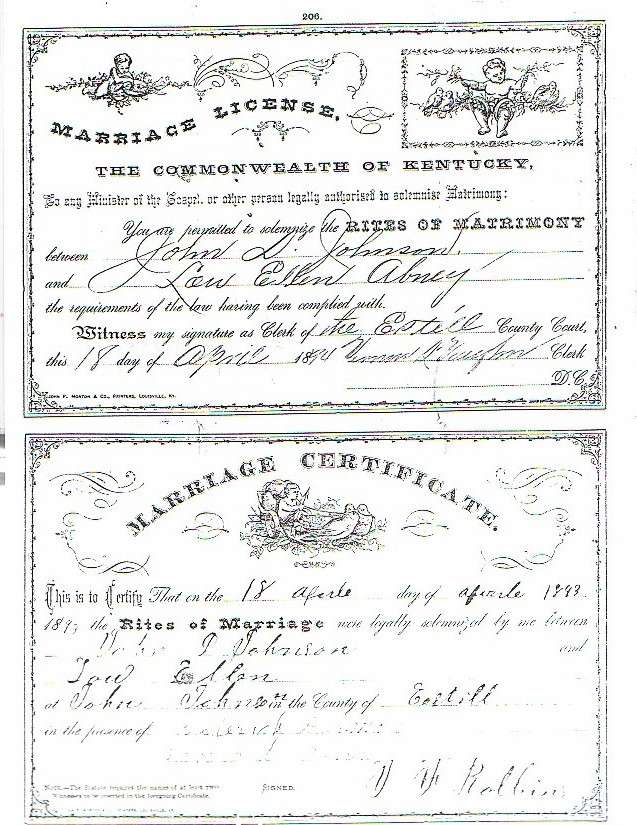 206.
MARRIAGE LICENSE,
THE COMMONWEALTH OF KENTUCKY,
To any Minister of the Gospel, or other person legally authorised to solemnise Matrimony:
You are permitted to solemnize the RITES OF MATRIMONY
between John D. Johnson
and Lou Ellen Abney
the requirements of the law having been complied with.
Witness my signature as Clerk of the Estill County Court,
this 18 day of April 1894 Clerk
D.C.
JOHN P. MORTON & CO., PRINTERS, LOUISVILLE, KY.
MARRIAGE CERTIFICATE.
This is to Certify That on the 18 Aprle day of aprle 1893
189 the Rites of Marriage were legally solemnized by me between
John D Johnson and
Lou Ellen
at John Johnson in the County of Eostill
in the presence of
NOTE.—The Statute requires the names of at least two
Witnesses to be inserted in the foregoing Certificate.
SIGNED, Rollin